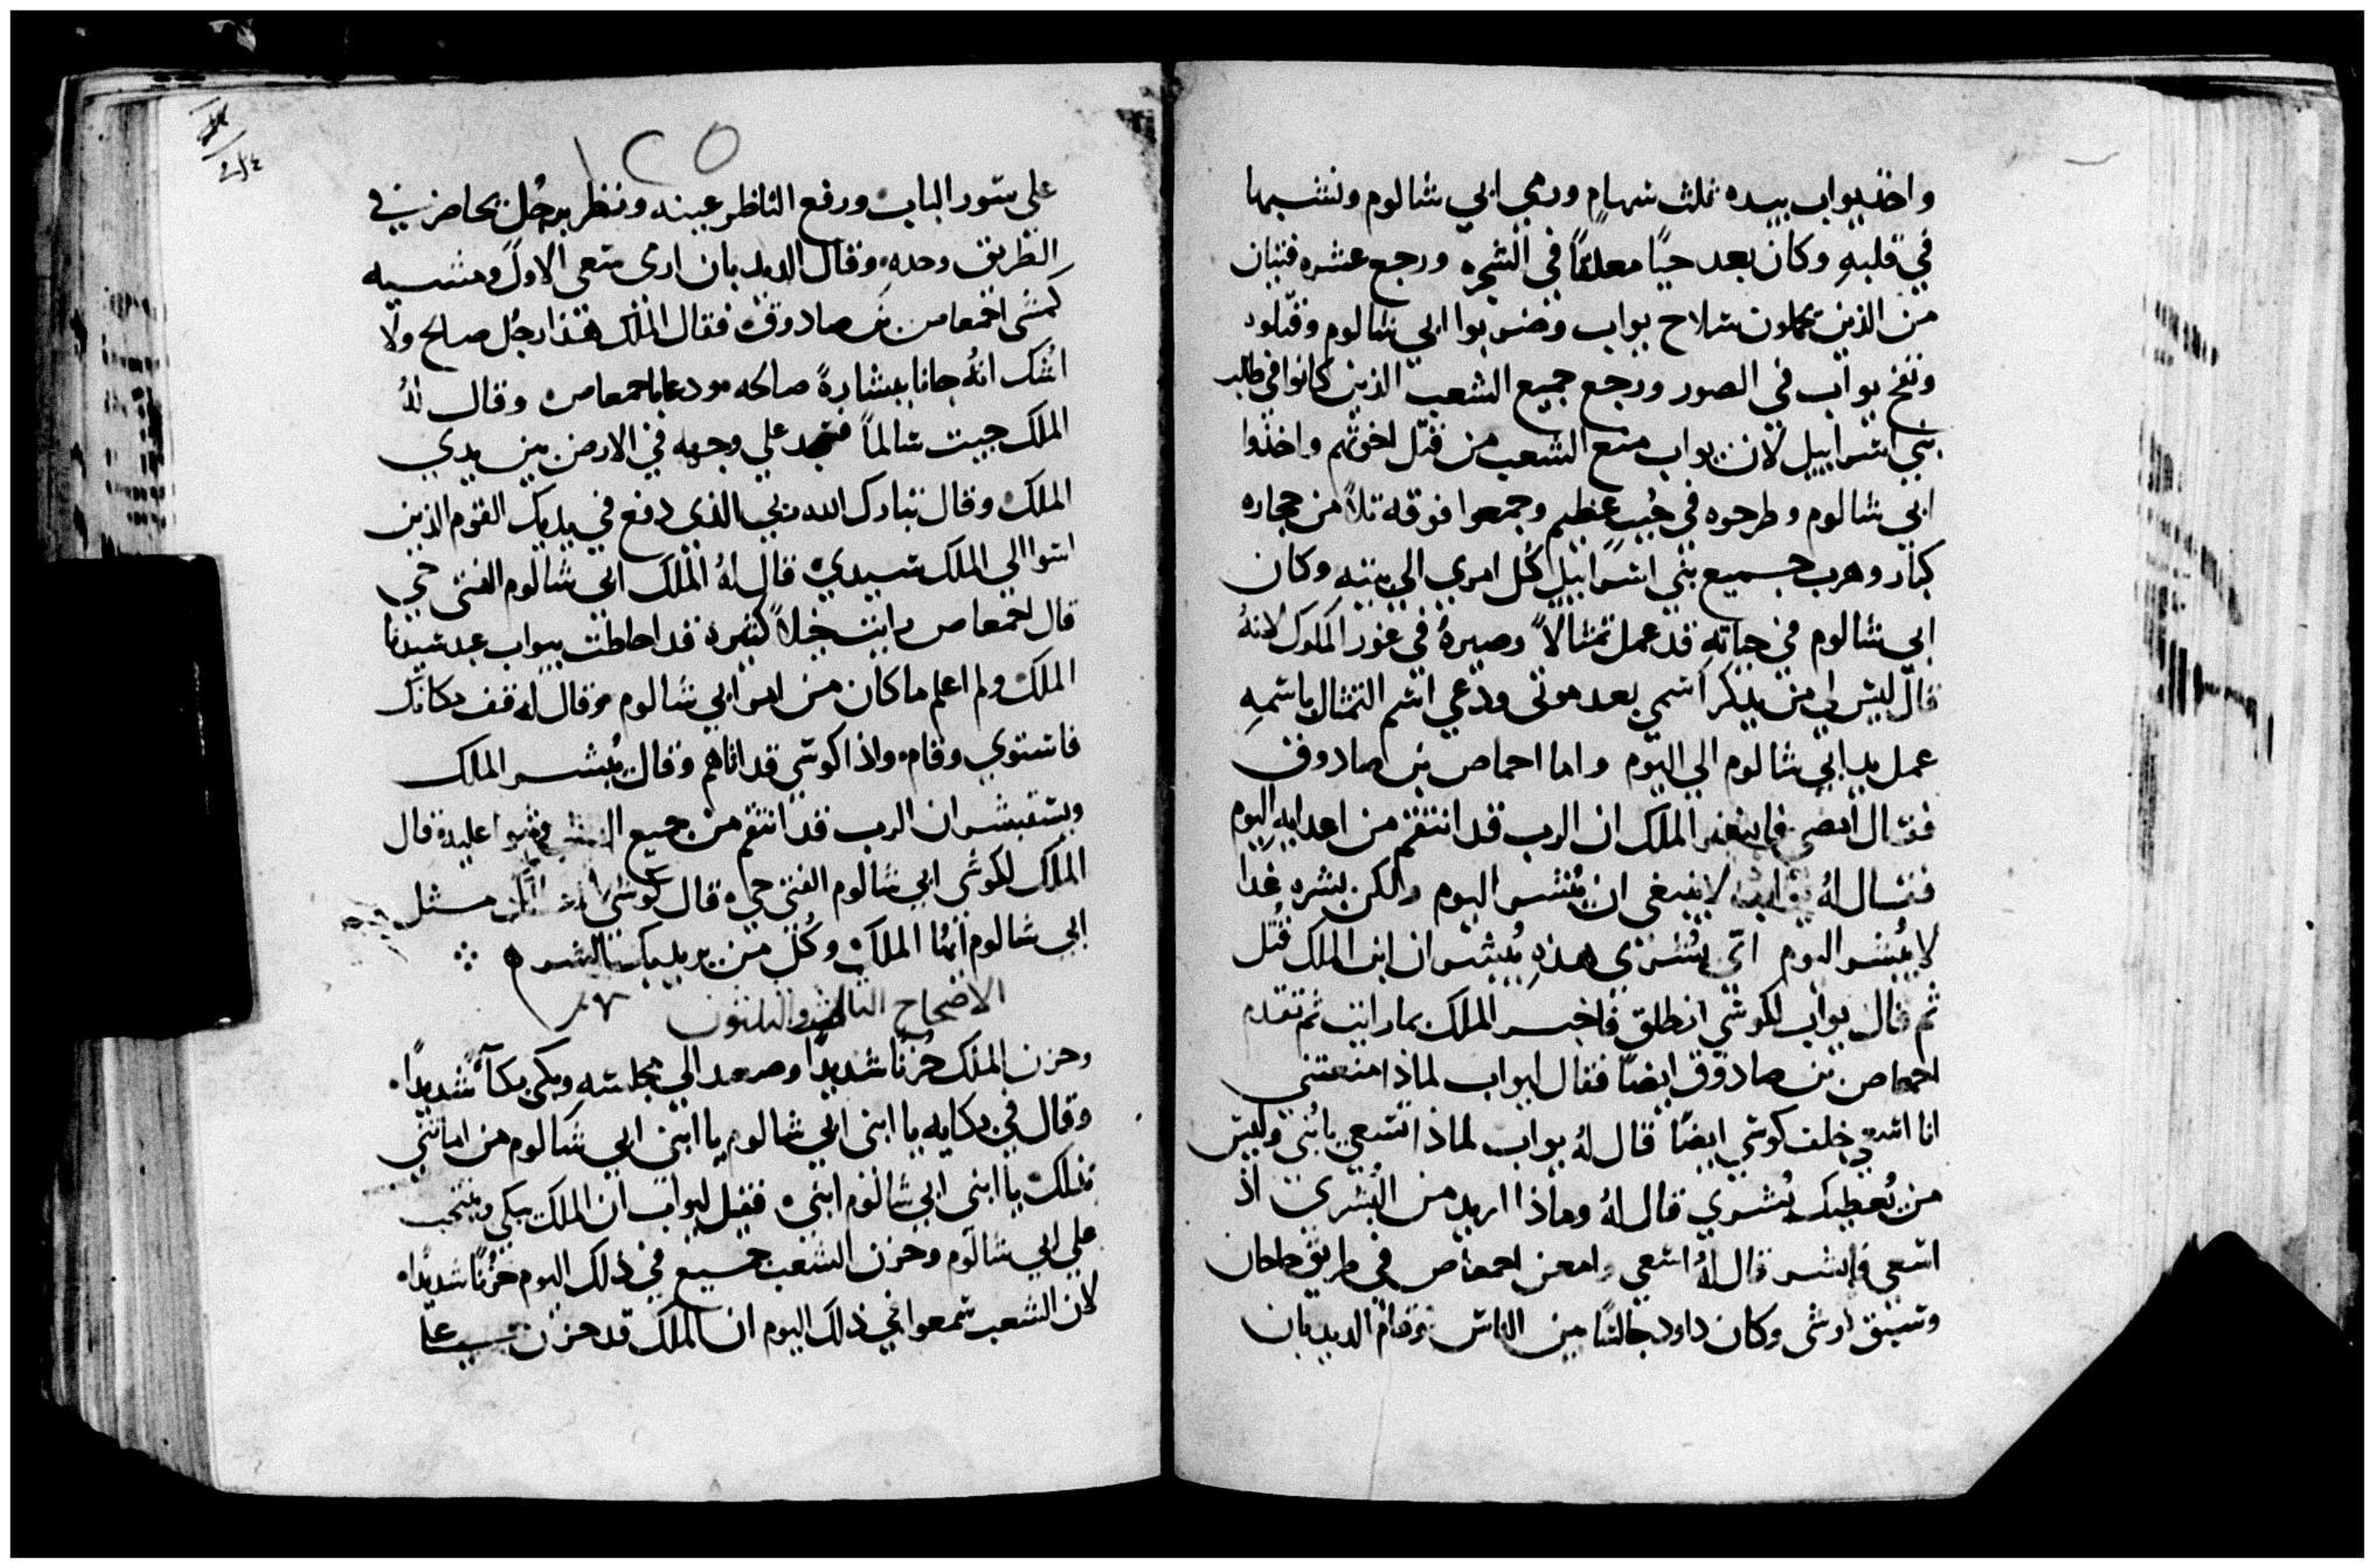 واخذ يواب بيده ثلث سهامٍ ورمي ابي شالوم ونشبها
في قلبهِ وكان بعد حيًا معلقًا في الشجره ورجع عشره فتيان
من الذين يحملون سلاح يواب وضربوا ابي شالوم وقتلوه
ونفخ يواب في الصور ورجع جميع الشعب الذين كانوا في طلب
بني اسراييل لان يواب منع الشعب من قتل اخوتهم واخذوا
ابي شالوم وطرحوه في جُب عظيم وجمعوا فوقه تلاً من حجاره
كبار وهرب جميع بني اسراييل كل امري الي بيته وكان
ابي شالوم في حياته قد عمل تمثالاً وصيرهُ في غور الملوك لانهُ
قال ليس لي من يذكر اسمي بعد موتي ودعي اسم التمثال باسمهِ
عمل يد ابي شالوم الي اليوم واما احماص بن صادوق
فقال امضي فابشر الملك ان الرب قد انتقم من اعدايه اليوم
فقال لهُ يواب لا ينبغي ان تبشر اليوم ولكن بشره غدا
لا تُبشر اليوم اي بُشري هذهِ تُبشر ان ابن الملك قُتل
ثم قال يواب لكوشي انطلق فاخبر الملك بما رايت ثم تقدم
احمعاص بن صادوق ايضًا فقال ليواب لماذا منعتني
انا اسعي خلف كوشي ايضًا قال لهُ يواب لماذا تسعي يا بُني وليس
من يُعطيك بُشري قال لهُ وماذا اريد من البُشري اذ
اسعي فابشر قال لهُ اسعي وامعن احمعاص في طريق حلحان
وسبق كوشي وكان داود جالسًا بين الناس وقام الديدبان
١٢٥
علي سور الباب ورفع الناظر عينه ونظر برجُل يحاضر في
الطريق وحده وقال الديدبان اري سعي الاول ومشيه
كمشي احمعاص بن صادوق فقال الملك هذا رجُل صالح ولا
اشك انهُ جانا ببشارةً صالحه فودعا باحمعاص وقال لهُ
الملك جيت سالماً فسجد علي وجهه في الارض بين يدي
الملك وقال تبارك الله ربي الذي دفع في يديك القوم الذين
اسوا الي الملك سيدي قال لهُ الملك ابي شالوم الفتي حي
قال احمعاص رايت خيلاً كثيرة قد احاطت بيواب عبد سيدنا
الملك ولم اعلم ما كان من امر ابي شالوم وقال له قف مكانك
فاستوي وقام واذا كوشي قد اتاهم وقال يُبشر الملك
ويستبشر ان الرب قد انتقم من جميع الذين وثبوا عليه قال
الملك لكوشي ابي شالوم الفتي حي قال كوشي مثل
ابي شالوم ايها الملك وكُل من يريد بك الشر
الاصحاح الثالث والثلثون
وحزن الملك حُزنًا شديدًا وصعد الي مجلسه وبكي بكآً شديدًا
وقال في بكايه يا ابني ابي شالوم يا ابني ابي شالوم من اماتني
بدلك يا ابني ابي شالوم ابني فقيل ليواب ان الملك يبكي وينتحب
علي ابي شالوم وحزن الشعب جميع في ذلك اليوم حزنًا شديدًا
لان الشعب سمعوا في ذلك اليوم ان الملك قد حزن